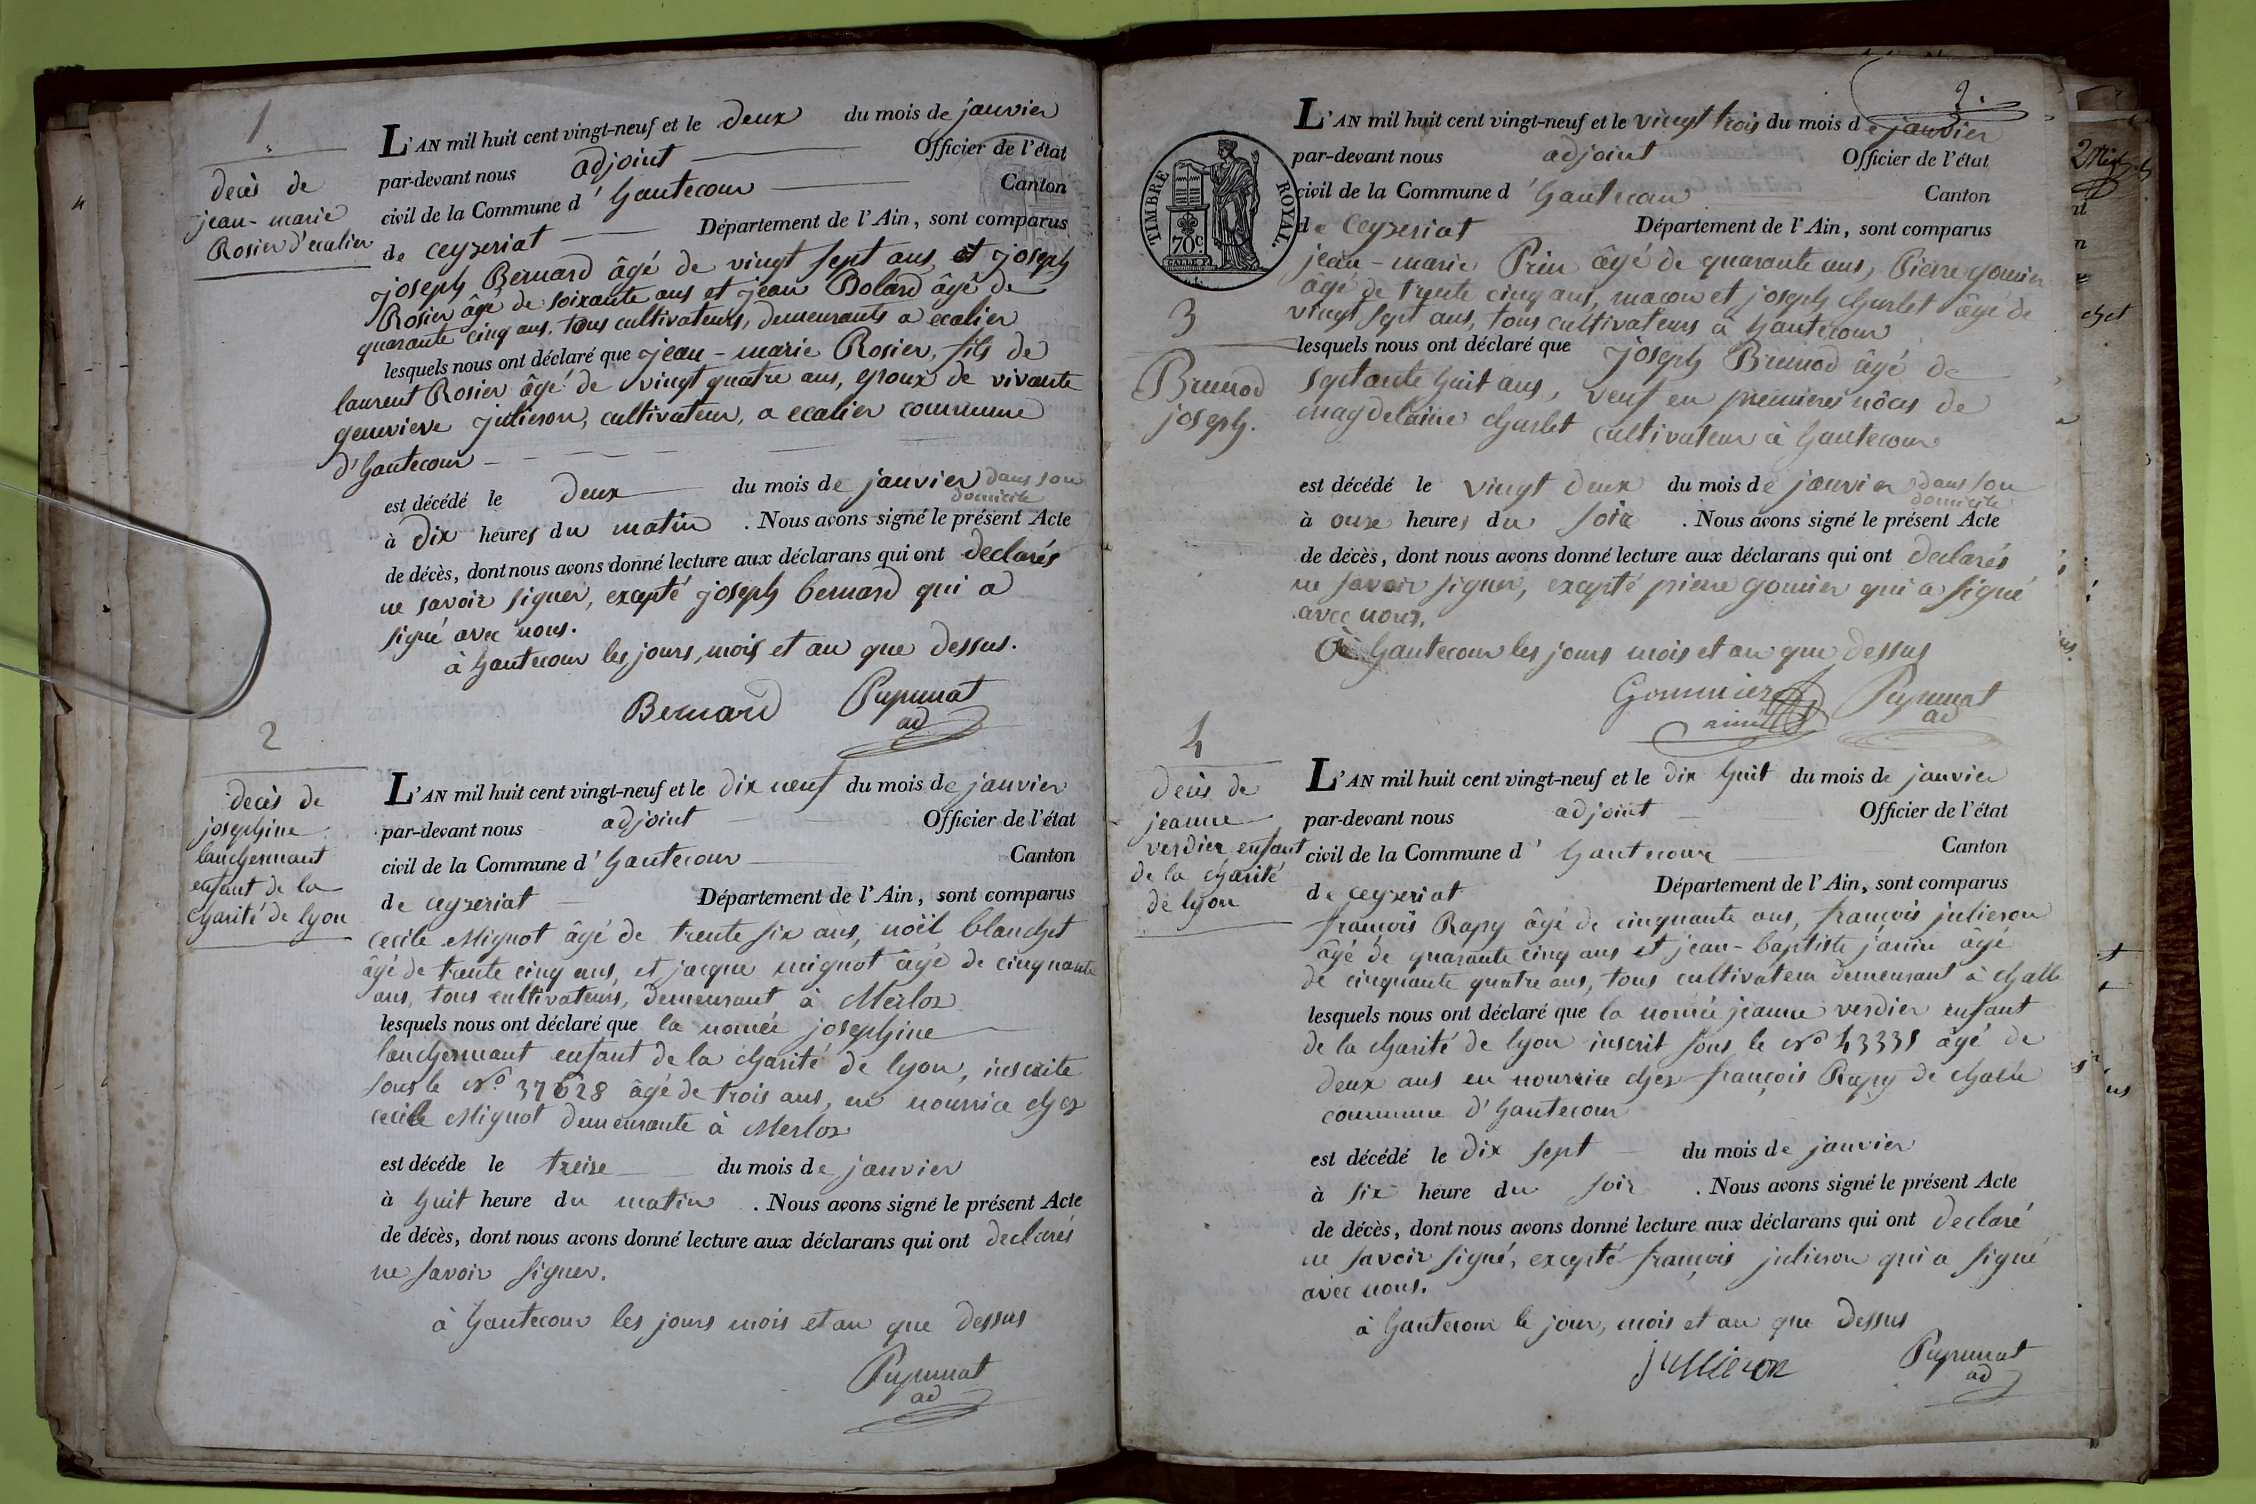 1
decès de
jean-marie
Rosier d'ecalier
L'AN mil huit cent vingt-neuf et le deux du mois de janvier
par-devant nous adjoint Officier de l'état
civil de la Commune d'hautecour Canton
de ceyzeriat Département de l'Ain, sont comparus
joseph Bernard âgé de vingt sept ans, et joseph
Rosier âgé de soixante ans et jean Bolard âgé de
quarante cinq ans, tous cultivateurs, demeurants a ecalier
lesquels nous ont déclaré que jean-marie Rosier, fils de
laurent Rosier âgé de vingt quatre ans, epoux de vivante
genevieve julieron, cultivateur, a ecalier commune
d'hautecour
est décédé le deux du mois de janvier dans son
domicile
à dix heures du matin. Nous avons signé le présent Acte
de décès, dont nous avons donné lecture aux déclarans qui ont declarés
ne savoir signer, excepté joseph bernard qui a
signé avec nous.
à hautecour les jours, mois et an que dessus.
Bernard Pupunat
ad
2
decès de
josephine
lanchermant
enfant de la
charité de lyon
L'AN mil huit cent vingt-neuf et le dix neuf du mois de janvier
par-devant nous adjoint Officier de l'état
civil de la Commune d'hautecour Canton
de ceyzeriat Département de l'Ain, sont comparus
cecile Mignot âgé de trente six ans, noël blanchet
âgé de trante cinq ans, et jacque mignot âgé de cinquante
ans, tous cultivateurs, demeurant à Merloz
lesquels nous ont déclaré que la nomée josephine
lanchermant enfant de la charité de lyon, inscrite
sous le N° 37628 âgé de trois ans, en nourrice chez
cecile Mignot demeurante à Merloz
est décéde le treize du mois de janvier
à huit heure du matin. Nous avons signé le présent Acte
de décès, dont nous avons donné lecture aux déclarans qui ont declarés
ne savoir signer.
à hautecour les jours mois et an que dessus
Pupunat
ad
2.
TIMBRE ROYAL.
70c
3
Brunod
joseph.
L'AN mil huit cent vingt-neuf et le vingt trois du mois de janvier
par-devant nous adjoint Officier de l'état
civil de la Commune d'hautecour Canton
de Ceyzeriat Département de l'Ain, sont comparus
jean-marie Prin âgé de quarante ans, Pierre gonnier
âgé de trente cinq ans, maçon et joseph charlet âgé de
vingt sept ans, tous cultivateurs à hautecour
lesquels nous ont déclaré que joseph Brunod âgé de
septante huit ans, veuf en premieres nôces de
magdelaine charlet cultivateur à hautecour
est décédé le vingt deux du mois de janvier dans son
domicile
à onze heures du soir. Nous avons signé le présent Acte
de décès, dont nous avons donné lecture aux déclarans qui ont declarés
ne savoir signer, excepté pierre gonnier qui a signé
avec nous.
à hautecour les jours mois et an que dessus
Gonnnier Pupunat
ad
4
decès de
jeanne
verdier enfant
de la charité
de lyon
L'AN mil huit cent vingt-neuf et le dix huit du mois de janvier
par-devant nous adjoint Officier de l'état
civil de la Commune d'hautecour Canton
de ceyzeriat Département de l'Ain, sont comparus
françois Rapy âgé de cinquante ans, françois julieron
âgé de quarante cinq ans et jean-baptiste janin âgé
de cinquante quatre ans, tous cultivateur demeurant à challe
lesquels nous ont déclaré que la nomée jeanne verdier enfant
de la charité de lyon inscrit sous le N° 43335 âgé de
deux ans en nourrice chez françois Rapy de challe
commune d'hautecour
est décédé le dix sept du mois de janvier
à six heure du soir. Nous avons signé le présent Acte
de décès, dont nous avons donné lecture aux déclarans qui ont declaré
ne savoir signé, excepté françois julieron qui a signé
avec nous.
à hautecour le jour, mois et an que dessus
jullieron Pupunat
ad